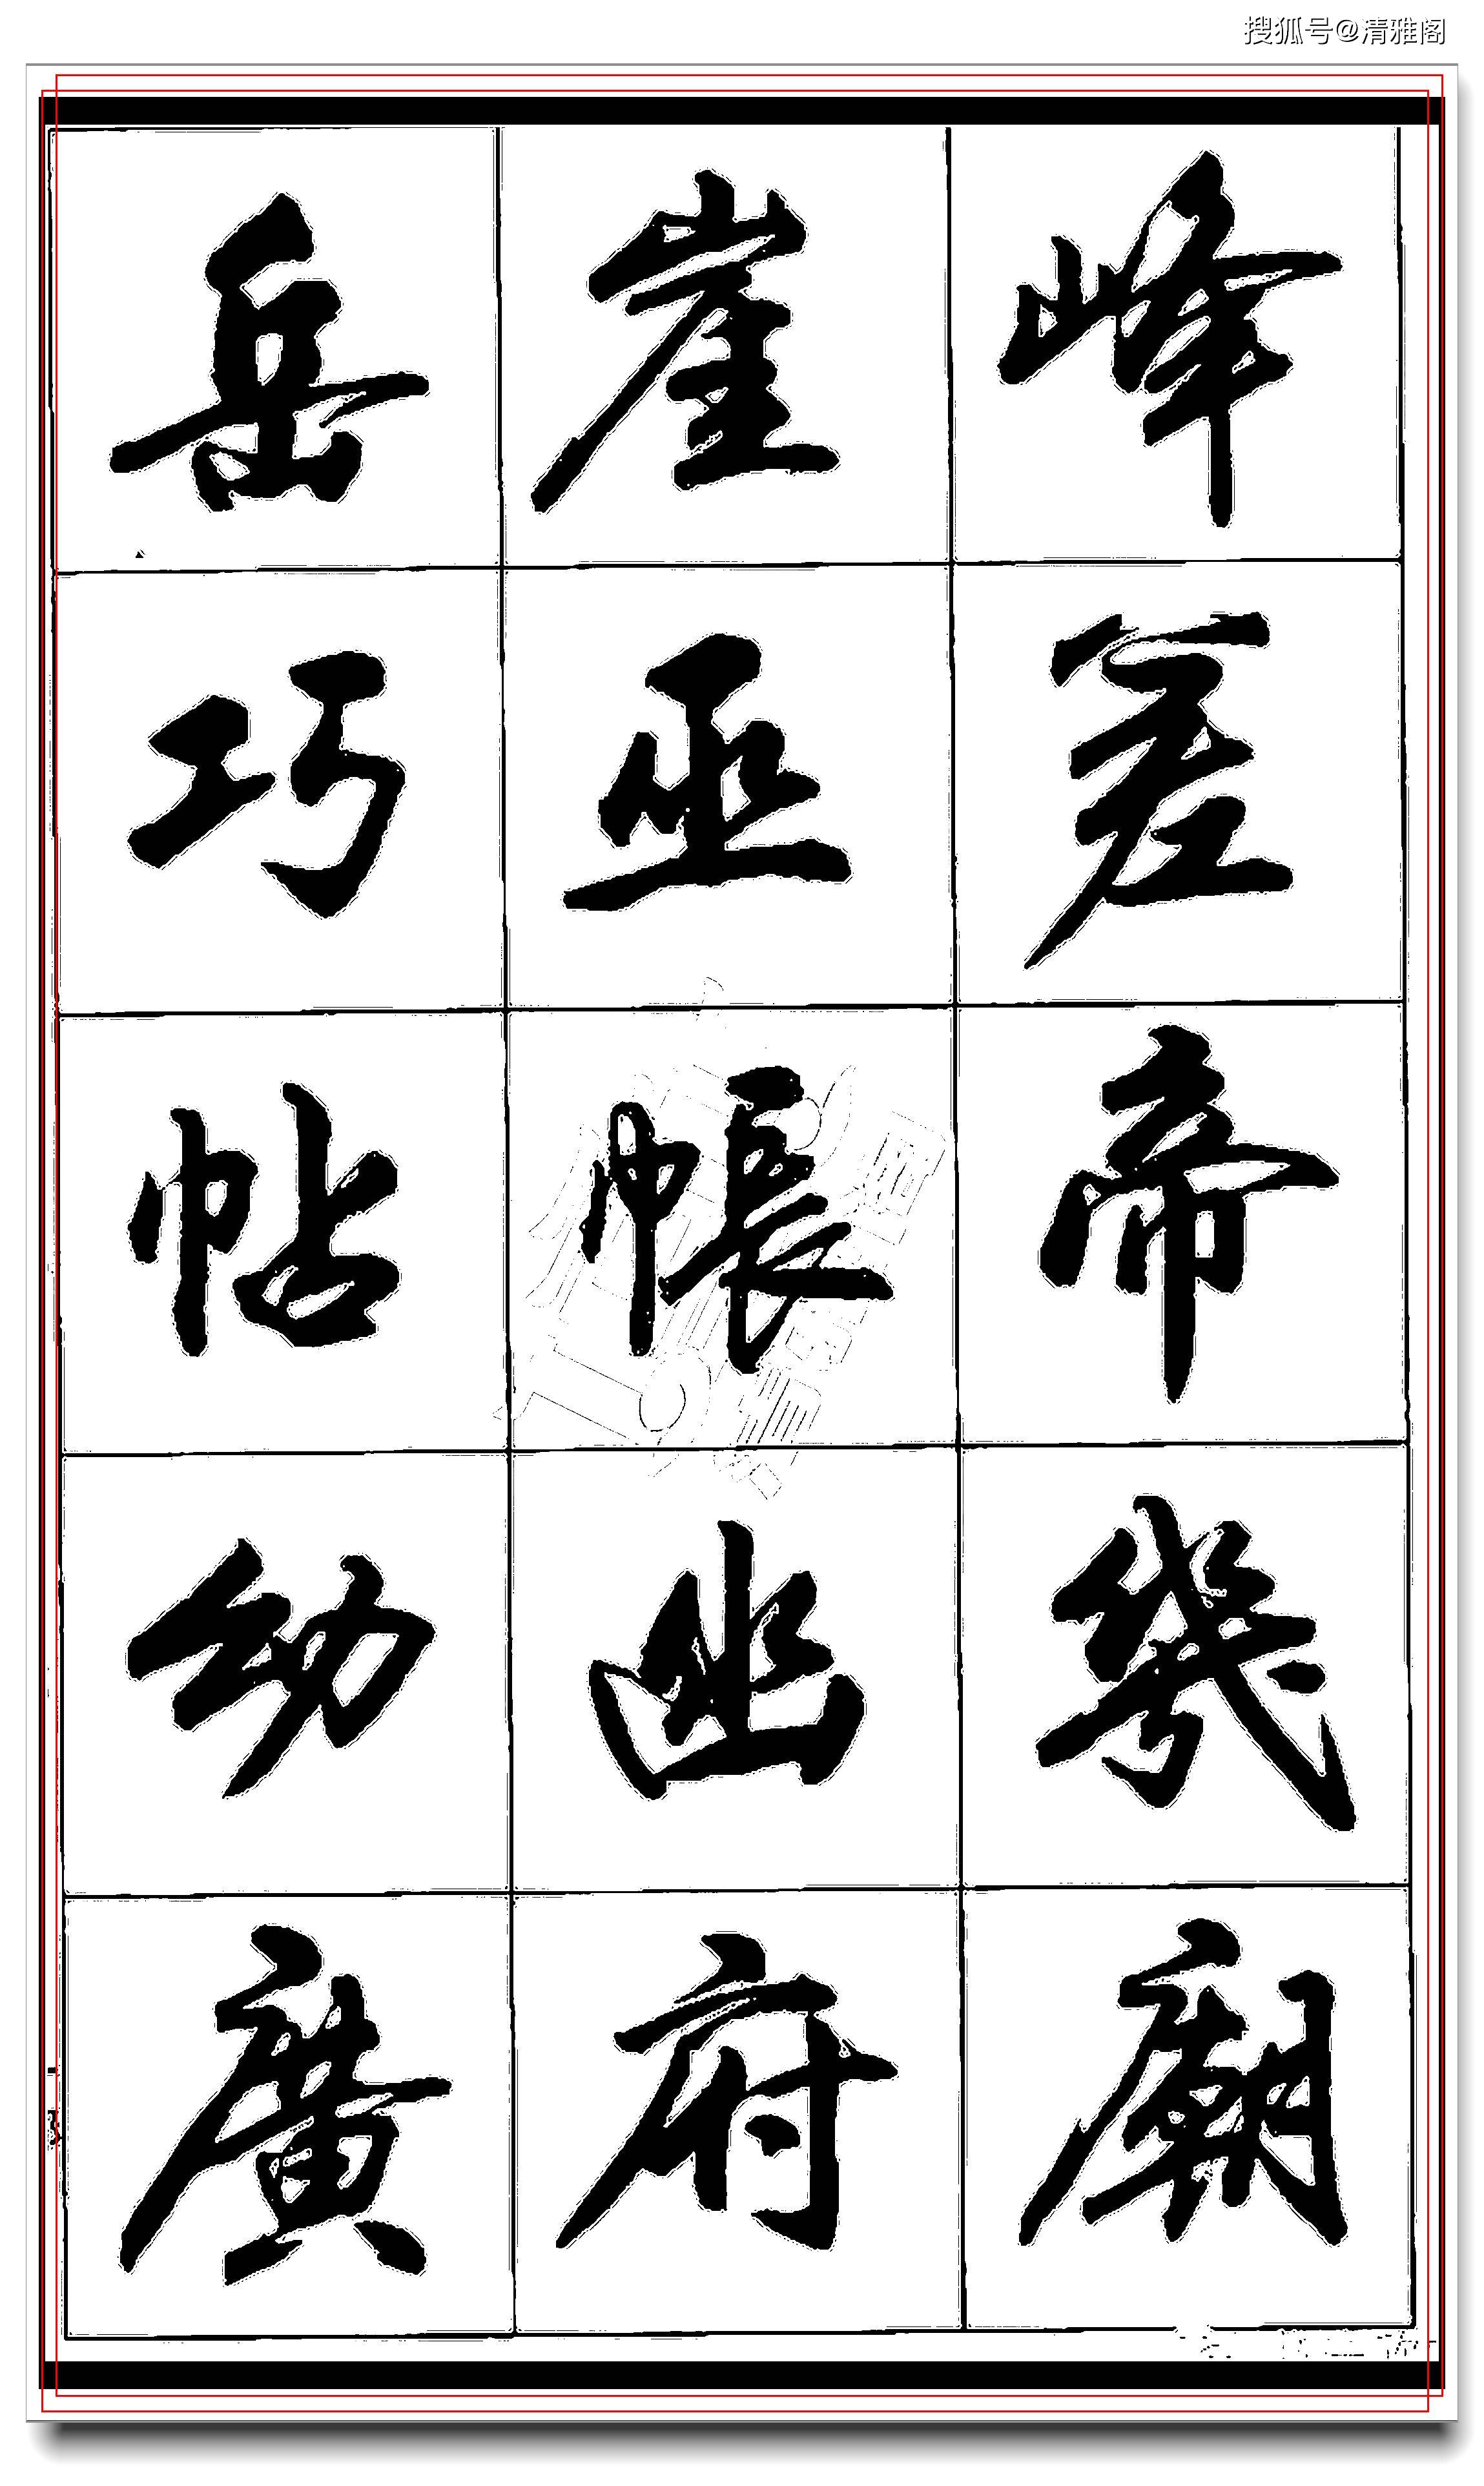 搜狐号@清雅阁
岳崖峰
巧巫差
帖帳帝
幼幽幾
廣府廟